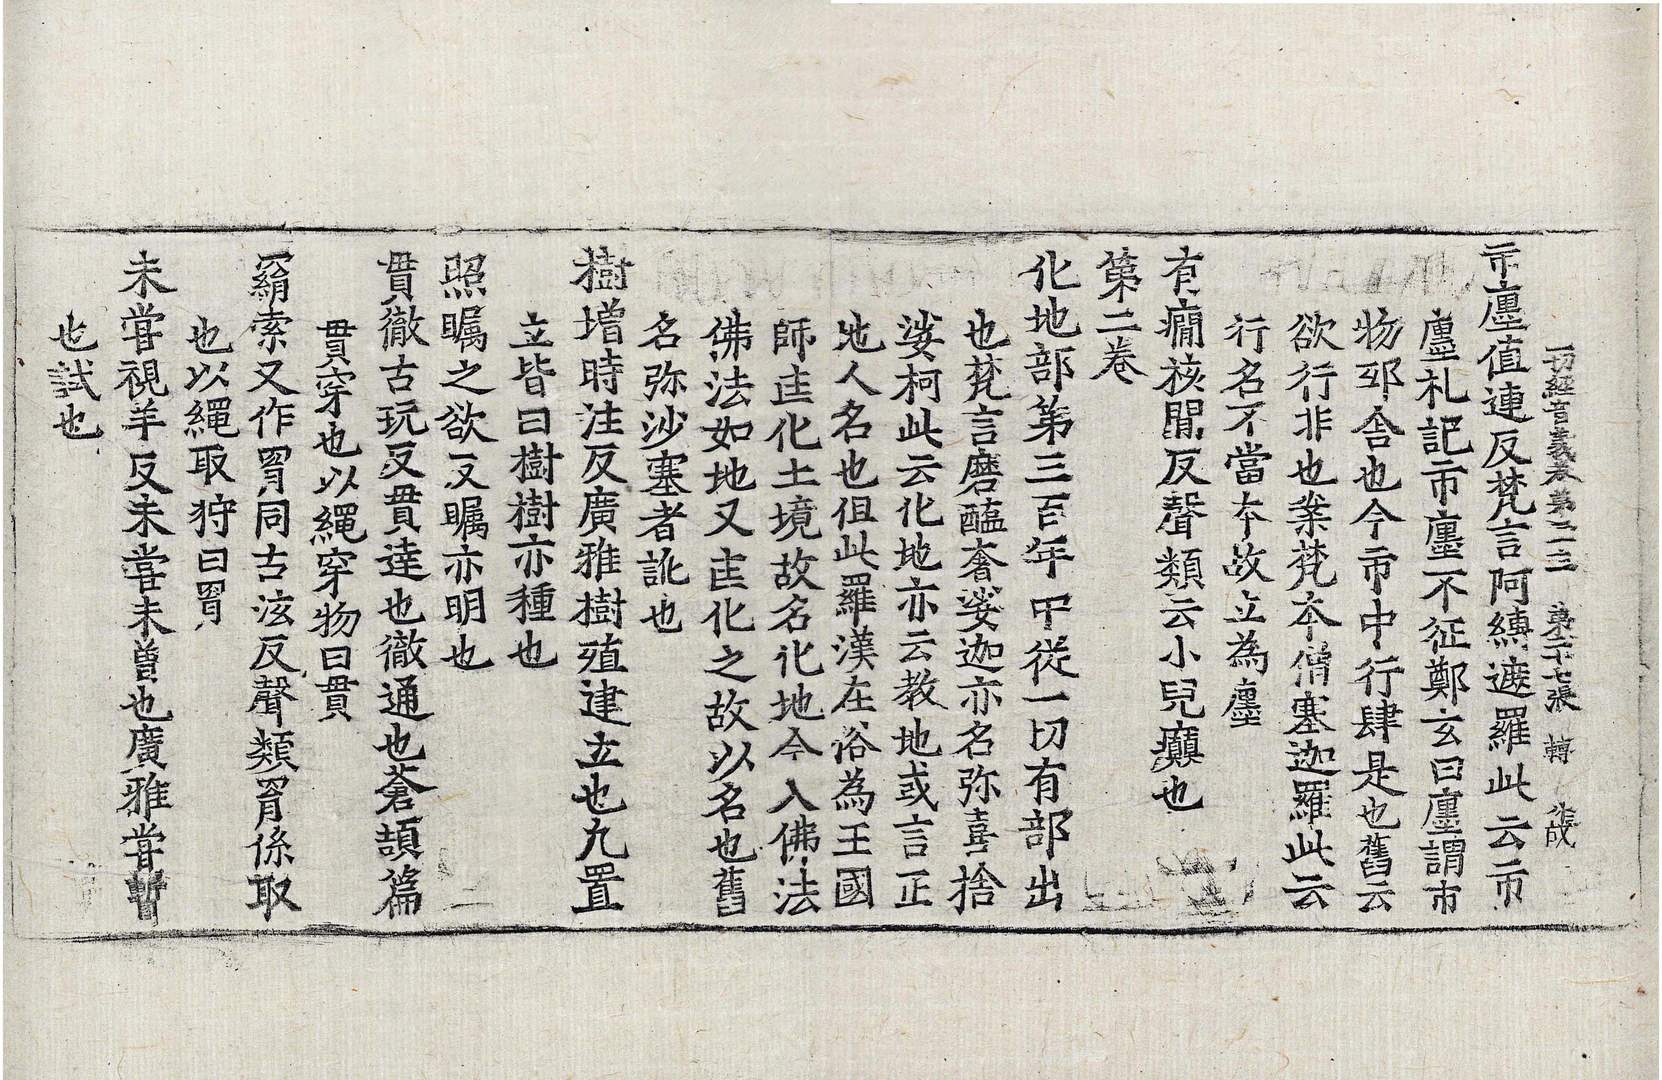 一切經音義卷第二十三 第二十七張 轉 [?]成
市廛值連反梵言阿縛遮羅此云市
廛礼記市廛不征鄭玄曰廛謂市
物邸舍也今市中行肆是也舊云
欲行非也案梵本僧塞迦羅此云
行名不當本故立為廛
有癇核間反聲類云小兒癲也
第二卷
化地部第三百年中從一切有部出
也梵言磨醯奢娑迦亦名弥喜捨
娑柯此云化地亦云教地或言正
地人名也但此羅漢在俗為王國
師匡化土境故名化地今入佛法
佛法如地又匡化之故以名也舊
名弥沙塞者訛也
樹增時注反廣雅樹殖建立也九置
立皆曰樹樹亦種也
照矚之欲反矚亦明也
貫徹古玩反貫達也徹通也蒼頡篇
貫穿也以繩穿物曰貫
羂索又作罥同古泫反聲類罥係取
也以繩取狩曰罥
未甞視羊反未甞未曾也廣雅甞暫
也試也